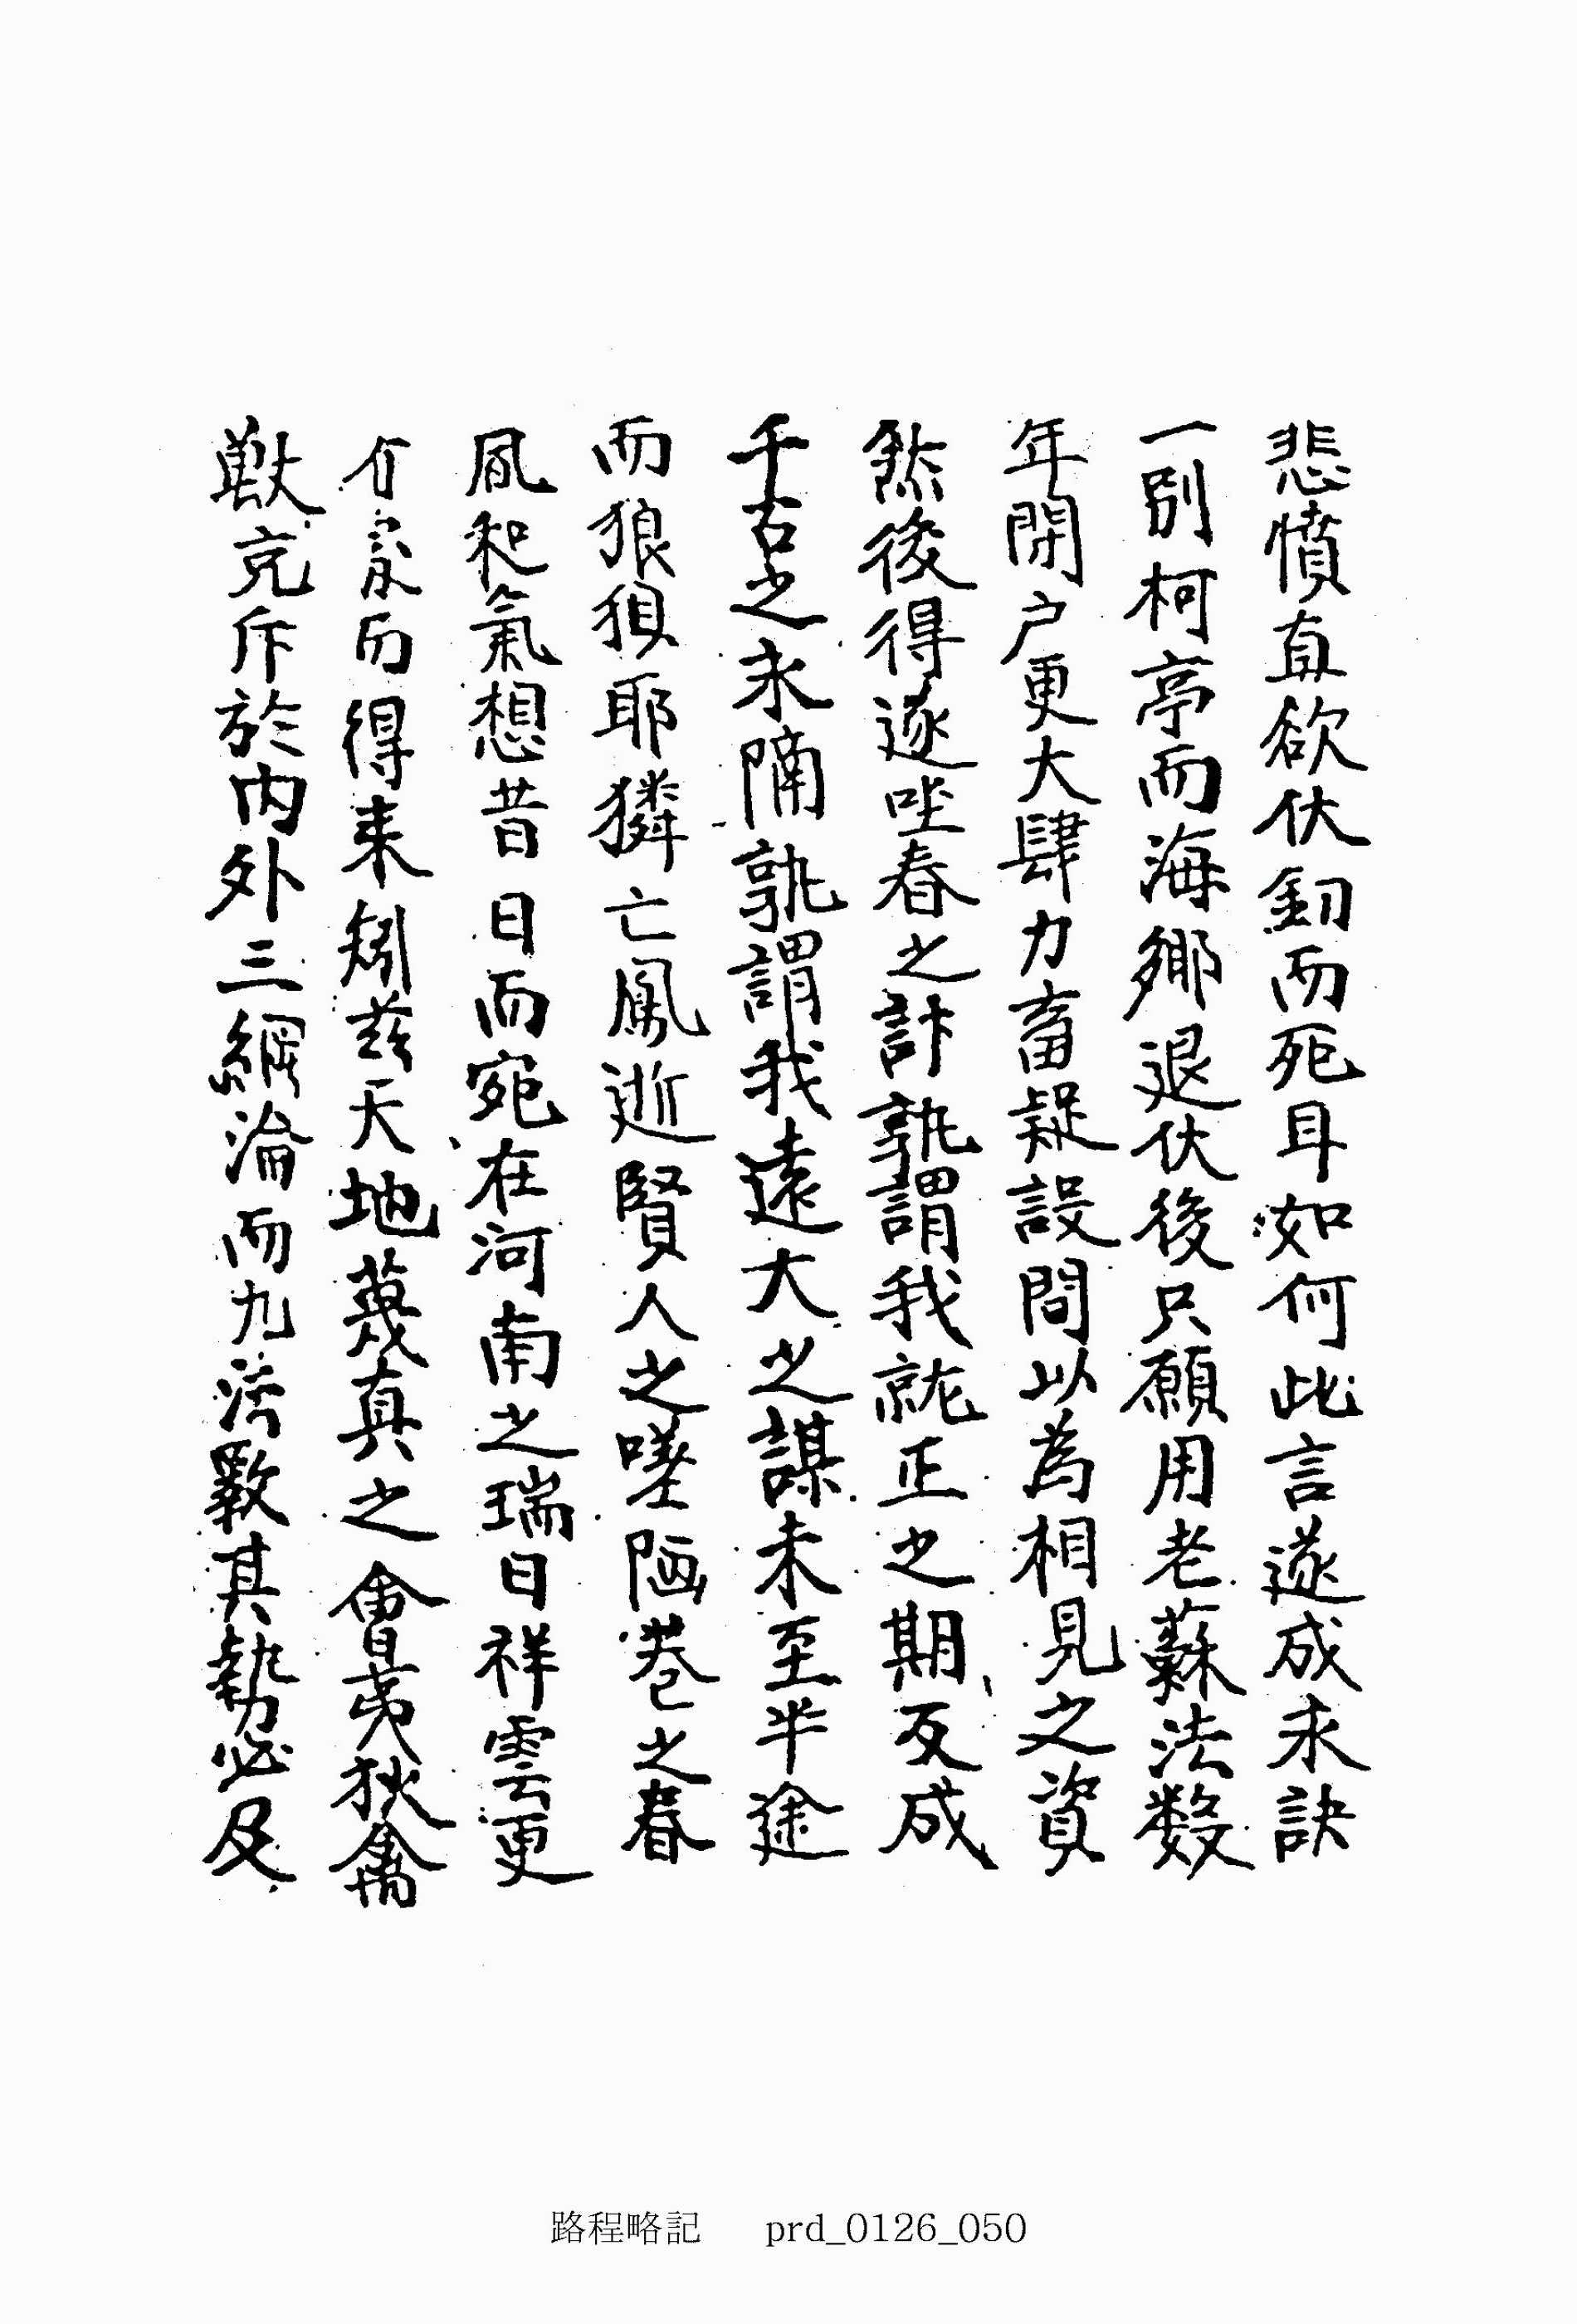 悲憤直欲伏釰而死耳如何此言遂成永訣
一別柯亭而海鄉退伏後只願用老蘇法数
年閉户更大肆力畜疑設問以為相見之資
然後得遂坐春之計孰謂我就正之期反成
千古之永隔孰謂我遠大之謀未至半途
而狼狽耶獜亡鳳逝賢人之陋巷之春
風和氣想昔日而宛在河南之瑞日祥雲更
而得来矧茲天地蔑真之會夷狄禽
獸充斥於内外三綱淪而九法斁其勢必及
路程略記 prd_0126_050